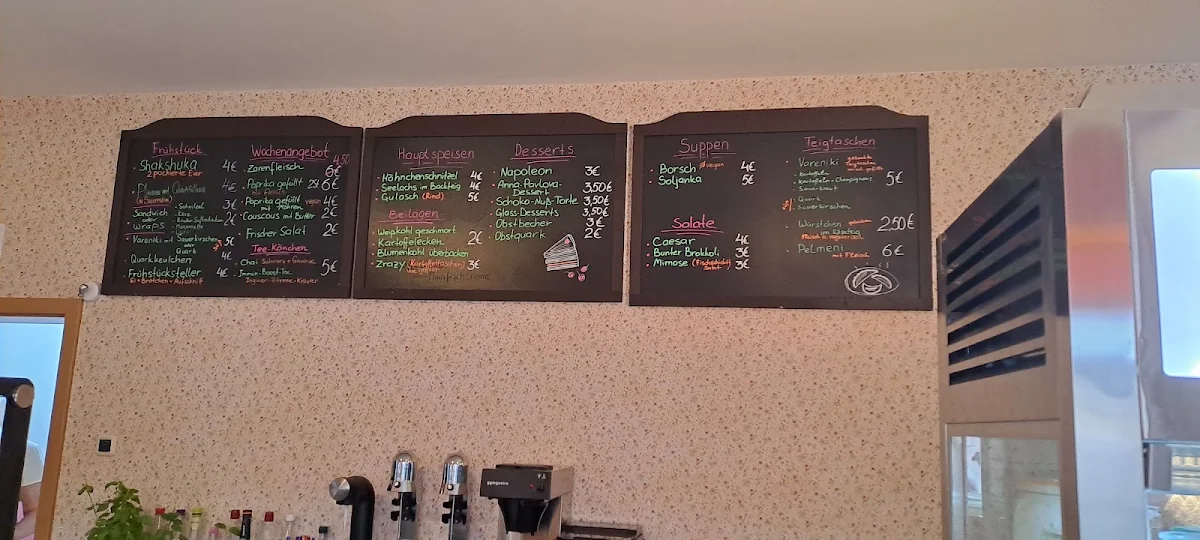 Frühstück
Shakshuka 4€
2 pochierte Eier
4€
Sandwich 3€
oder
Wraps
Vareniki mit Sauerkirschen 5€
oder
Quark
Quarkkeulchen 4€
Frühstücksteller 4€
Ei + Brötchen + Aufschnitt
Wochenangebot
4,50
Zarenfleisch 6€
Paprika gefüllt 2St. 6€
mit Fleisch
Paprika gefüllt vegan 4€
mit Möhren
Couscous mit Butter 2€
Frischer Salat 2€
Tee-Kännchen
Chai Schwarz + 5€
Immun-Boost-Tee
Ingwer-Zitrone-Kräuter
Hauptspeisen
Hähnchenschnitzel 4€
Seelachs im Backteig 4€
Gulasch (Rind) 5€
Beilagen
Weißkohl geschmort
Kartoffelecken 2€
Blumenkohl überbacken
Zrazy (Kartoffeltaschen) 3€
Desserts
Napoleon 3€
Anna-Pavlova-
Dessert 3,50€
Schoko-Nuß-Torte 3,50€
Glass-Desserts 3,50€
Obstbecher 3€
Obstquark 2€
Suppen
Borsch vegan 4€
Soljanka 5€
Salate
Caesar 4€
Bunter Brokkoli 3€
Mimose (Fischschicht) 3€
Salat
Teigtaschen
Vareniki gekochte
Teigtaschen
Kartoffel
Kartoffel-Champignons 5€
Sauerkraut
Quark
Sauerkirschen
Würstchen 2,50€
im Käseteig
Pelmeni 6€
mit Fleisch